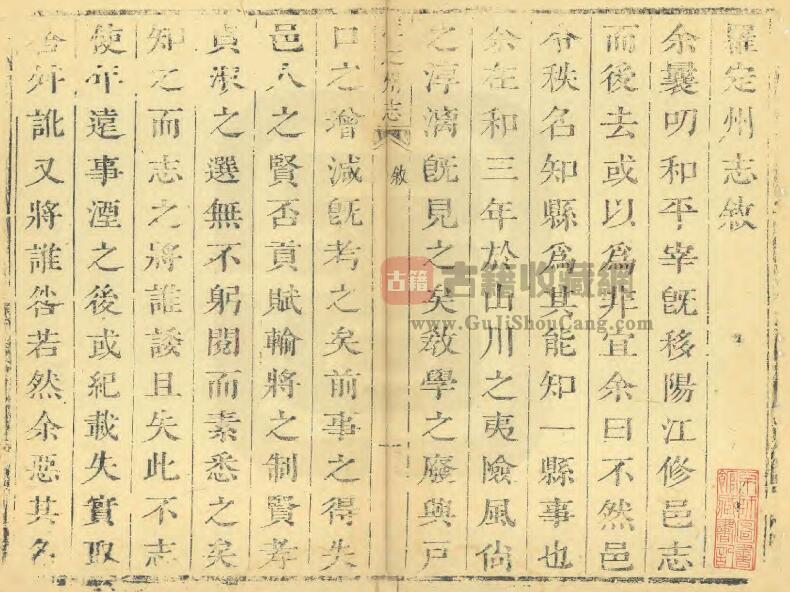 羅定州志敘
余曩叨和平宰旣移陽江修邑志
而後去或以爲非宜余曰不然邑
令秩名知縣爲其能知一縣事也
余在和三年於山川之夷險風尙
之淳漓旣見之矣敎學之廢興戶
州志
敘
一
口之增減旣考之矣前事之得失
邑人之賢否貢賦輸將之制賢孝
貞淑之選無不躬閱而素悉之矣
知之而志之將誰諉且失此不志
使年遠事湮之後或紀載失實取
舍舛訛又將誰咎若然余惡其名
古籍
古籍收藏網
www.GuJiShouCang.com